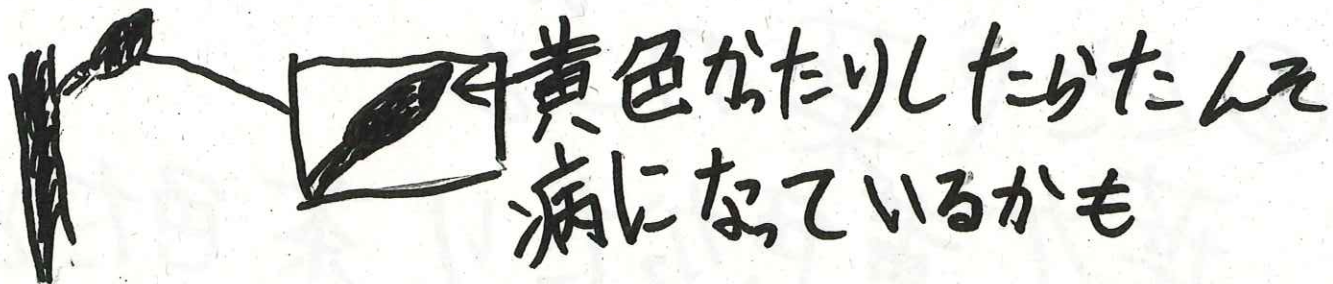 黄色かったりしたらたんそ
病になっているかも